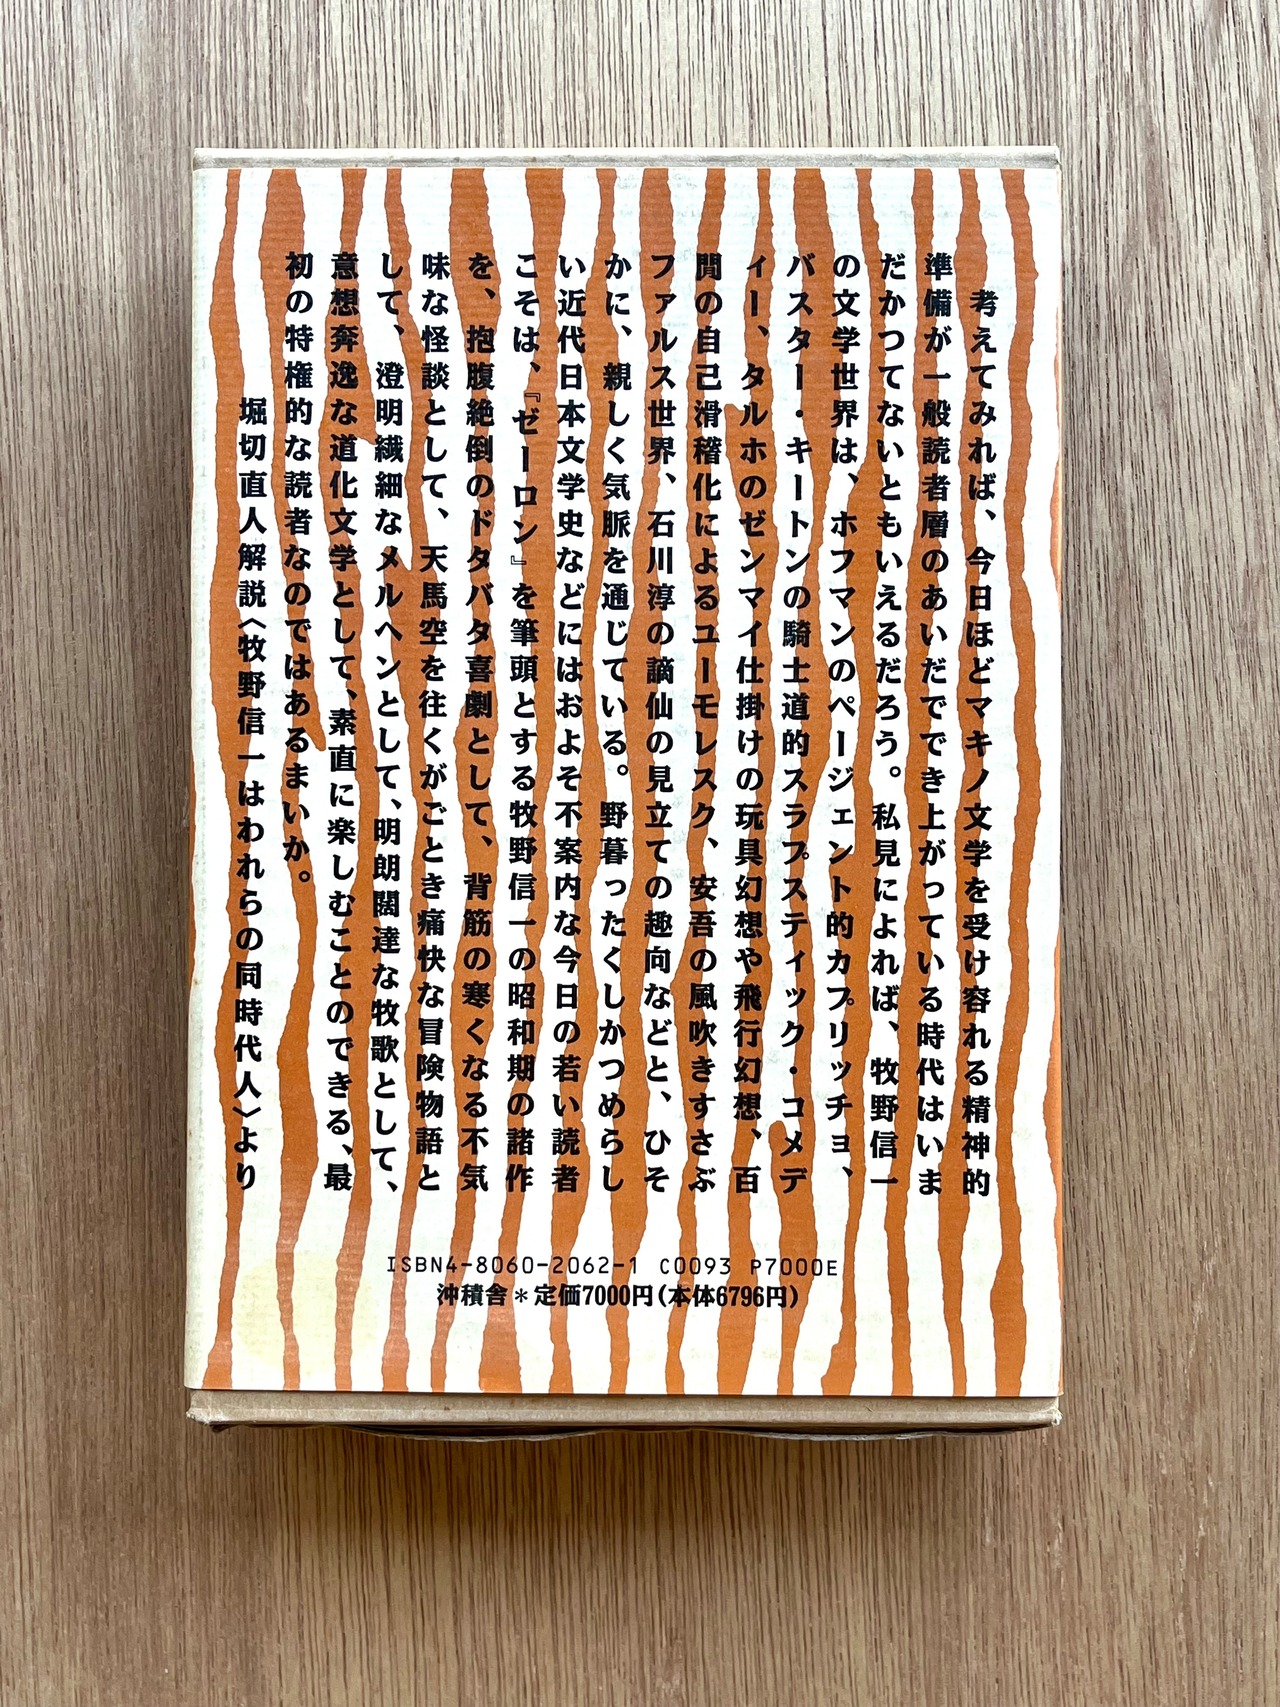 考えてみれば、今日ほどマキノ文学を受け容れる精神的
準備が一般読者層のあいだでき上がっている時代はいま
だかつてないともいえるだろう。私見によれば、牧野信一
の文学世界は、ホフマンのページェント的カプリッチョ、
バスター・キートンの騎士道的スラプスティック・コメデ
ィー、タルホのゼンマイ仕掛けの玩具幻想や飛行幻想、百
閒の自己滑稽化によるユーモレスク、安吾の風吹きすさぶ
ファルス世界、石川淳の謫仙の見立ての趣向などと、ひそ
かに、親しく気脈を通じている。野暮ったくしかつめらし
い近代日本文学史などにはおよそ不案内な今日の若い読者
こそは、『ゼーロン』を筆頭とする牧野信一の昭和期の諸作
を、抱腹絶倒のドタバタ喜劇として、背筋の寒くなる不気
味な怪談として、天馬空を往くがごとき痛快な冒険物語と
して、澄明繊細なメルヘンとして、明朗闊達な牧歌として、
意想奔逸な道化文学として、素直に楽しむことのできる、最
初の特権的な読者なのではあるまいか。
堀切直人解説〈牧野信一はわれらの同時代人〉より
ISBN4-8060-2062-1 C0093 P7000E
沖積舎＊定価7000円(本体6796円)